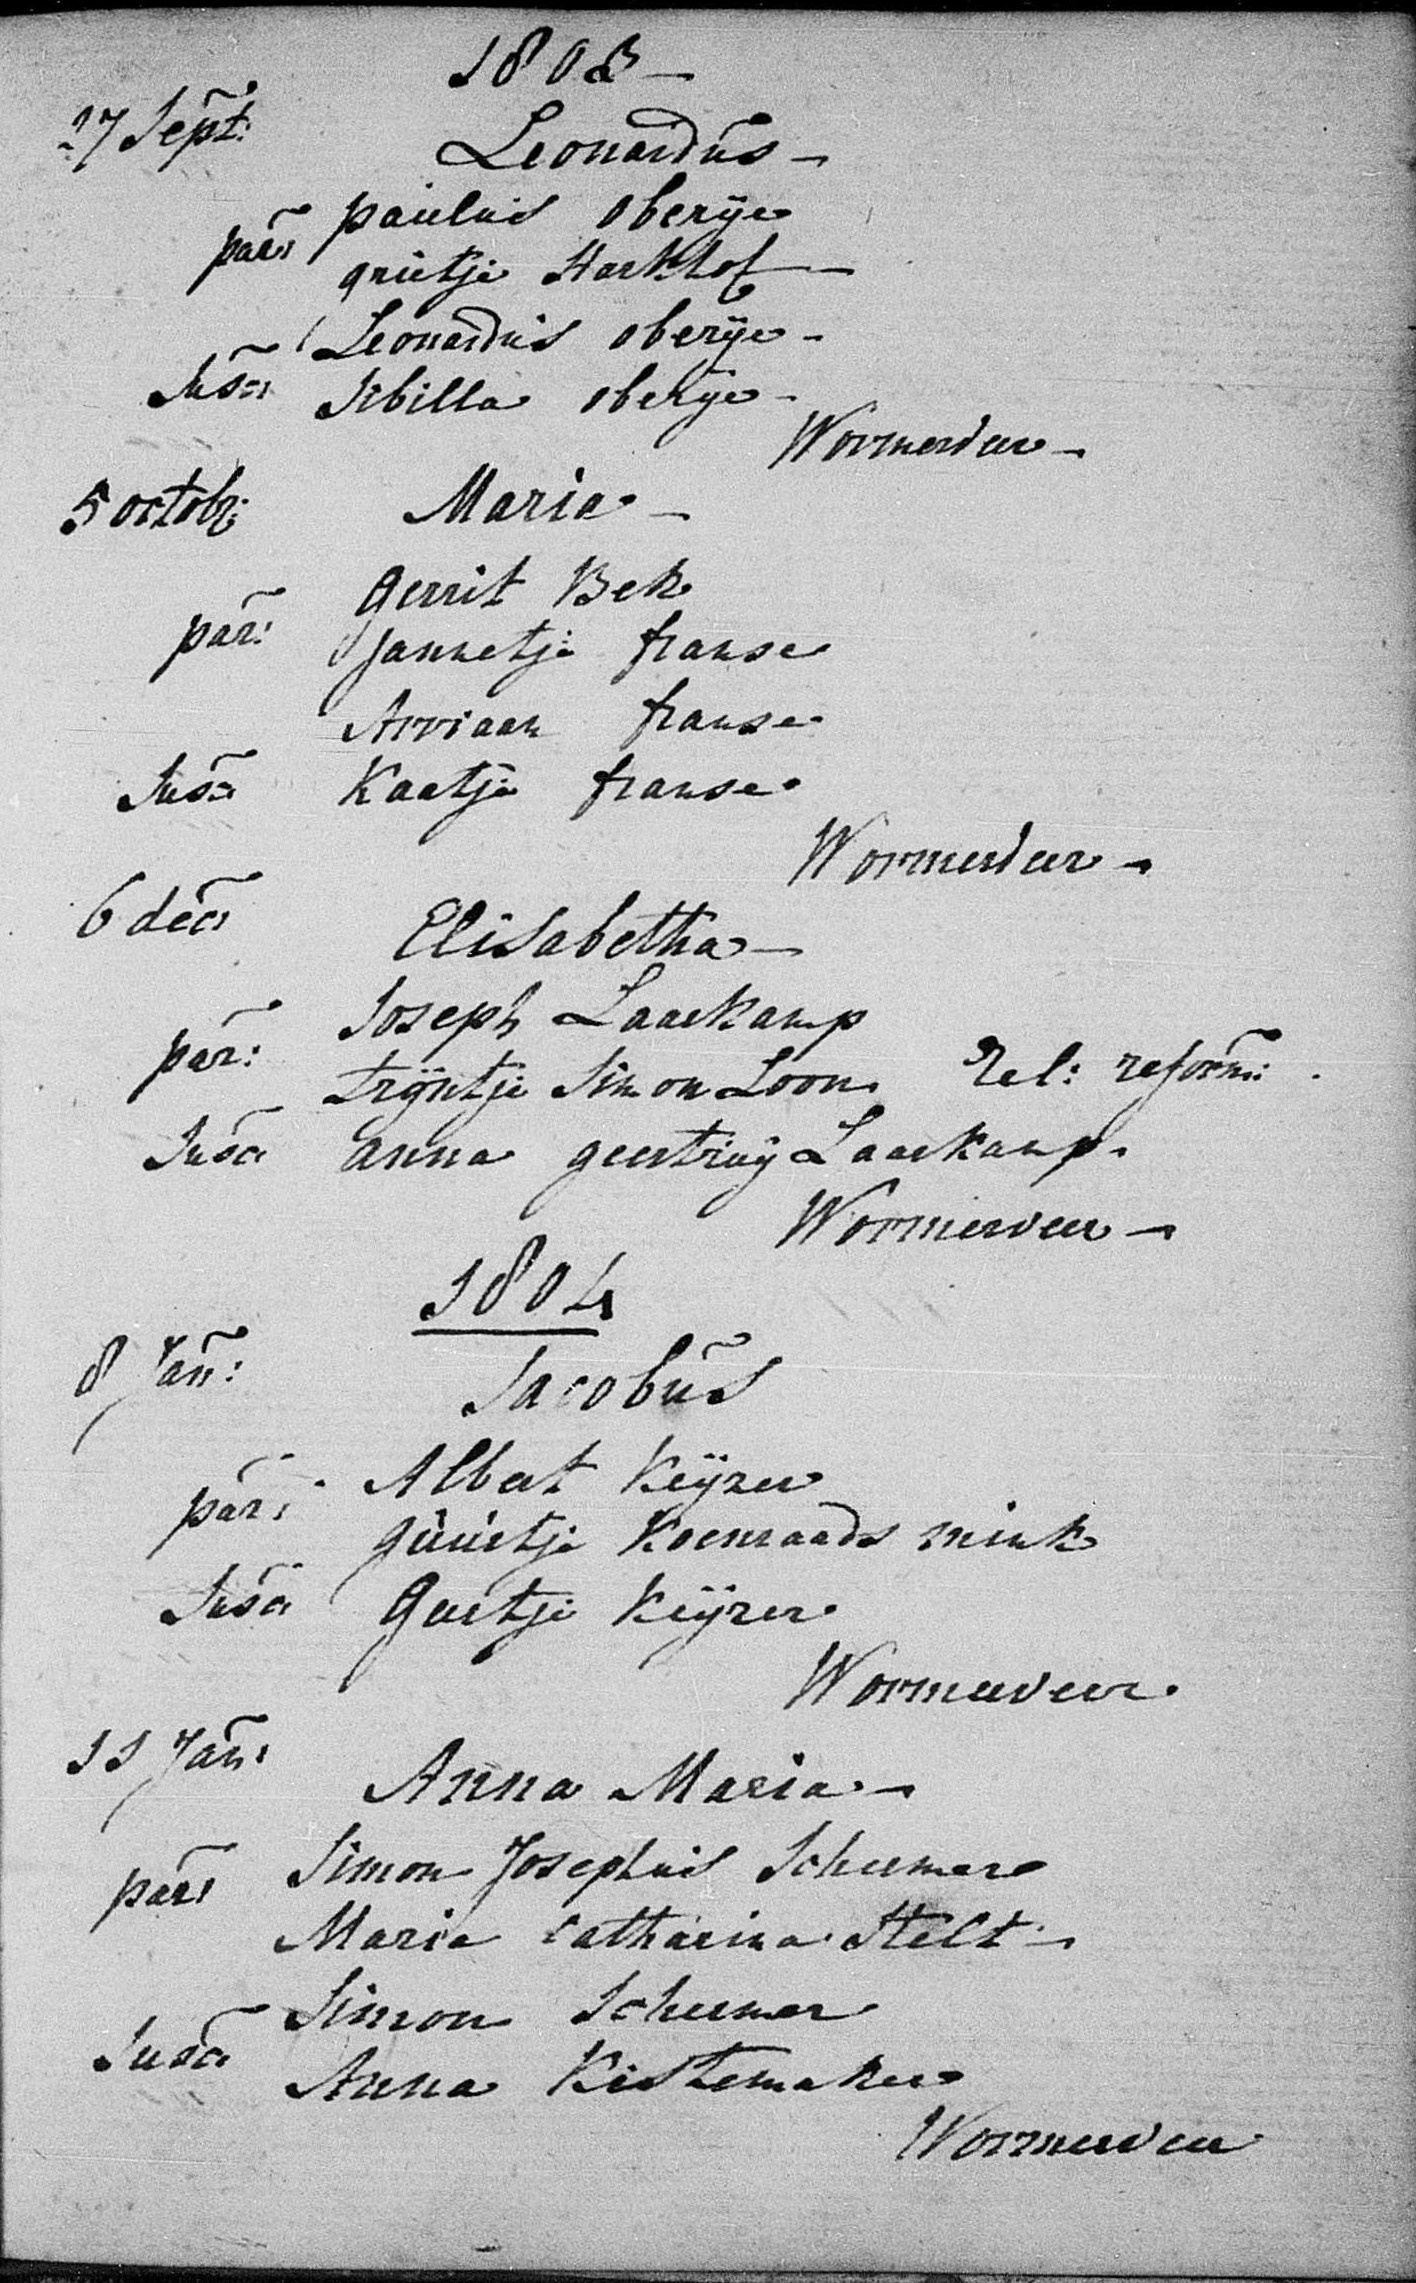 1803 -
27 Sept: Leonardus -
paulus oberÿe
par: grietje Harkhof -
Leonardus oberÿe -
Susc: Sibilla oberÿe -
Wormerveer -
5 octob: Maria -
Gerrit Bek
par: Jannetje franse
Arriaan franse
Susc: Kaatje franse
Wormerveer -
6 dec: Elisabetha -
Joseph Laarkamp
par: trÿntje Simon Loon Rel: reform:
Susc: anna geertruÿ Laarkamp
Wormerveer -
1804
8 Jan: Jacobus
Albert Keÿzer
par: guurtje Koenraads mink
Susc: Geertje Keÿzer
Wormerveer
11 Jan: Anna Maria -
Simon Josephus Scheemer
par: Maria Catharina Stelt -
Simon Scheemer
Susc: Anna Kistemaker
Wormerveer